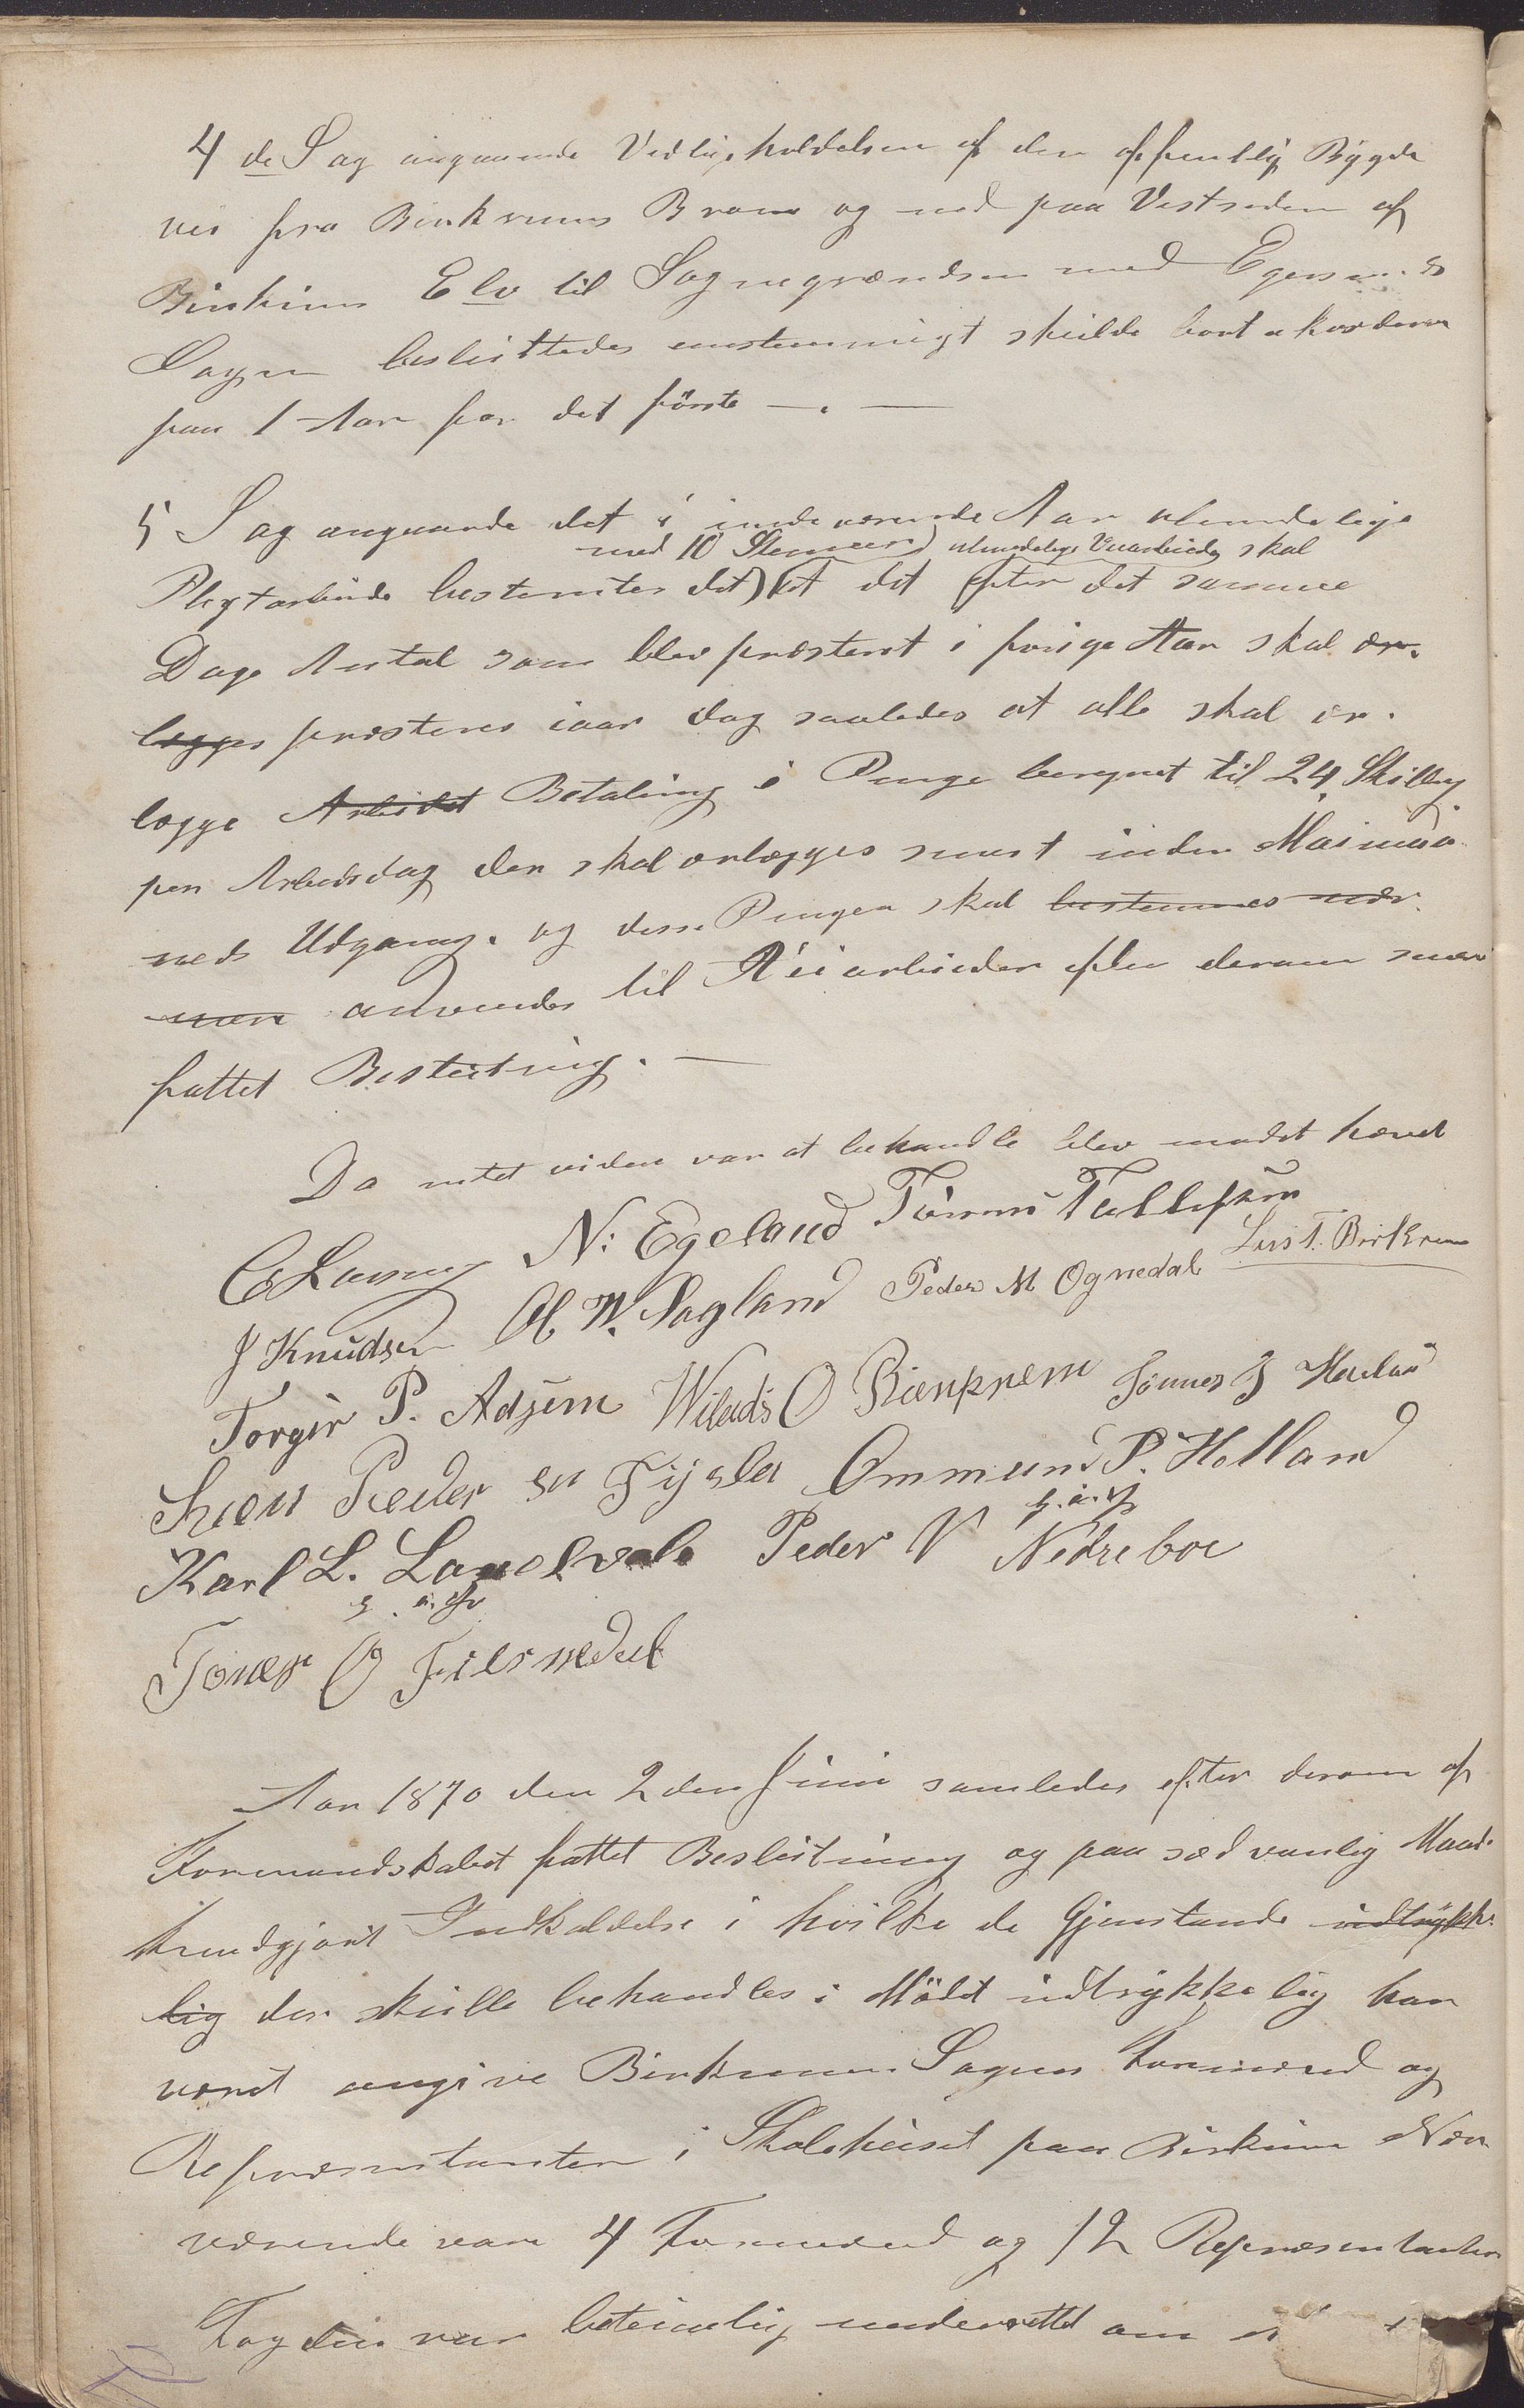 4 de Sag angaaende Vedligeholdelsen af den offentlig Bygde
vei fra Birkrems Broen og ned paa Vestsiden af
Birkrem Elv til Sognegrændsen med Egersunds
Sogn besluttedes enstemmigt skulde bortakorderes
paa 1 Aar for det förste —.—
5 Sag angaaende det i indeværende Aar almindelige
med 10 Stemmer) almindelige Veiarbeide skal
Pligtarbeide bestemtes det) at det efter det samme
Dage Antal som blev præsteret i forige Aar skal er.
lægges præsteres iaar dog saaledes at alle skal er.
lægge Arbeidet Betaling i Penge beregnet til 24 Skilling
per Arbeidsdag der skal erlægges senest inden Maimaa
neds Udgang. og disse Penger skal bestemmes nær.
mere anvendes til Veiarbeider efter derom nær
fattet Beslutning. —
Da intet videre var at behandle blev mødet hævet
N: Egeland Tönnes Tollefsen
J Knudsen Ol. W. Sagland Peder M Ognedal Lars T. Birkrem
Torger P. Adsem Wilads O Birkrem Tönnes J
Sven Peder sen Ommund P. Hetland
Karl L. Landsvale Peder V Nedrebøe
Tønes O
Aar 1870 den 2den Juni samledes efter derom af
Formandskabet fattet Beslutning og paa sædvanlig Maade
kundgjort Indkaldelse i hvilke de Gjenstande udtrykke.
lig der skulle behandles i Mödet udtrykkelig har
været angivne Birkrems Sogns Formænd og
Repræsentanter i Skolehuset paa Birkrem Nær
værende vare 4 Formænd og 12 Repræsentanter
Fogden var betimelig underrettet om